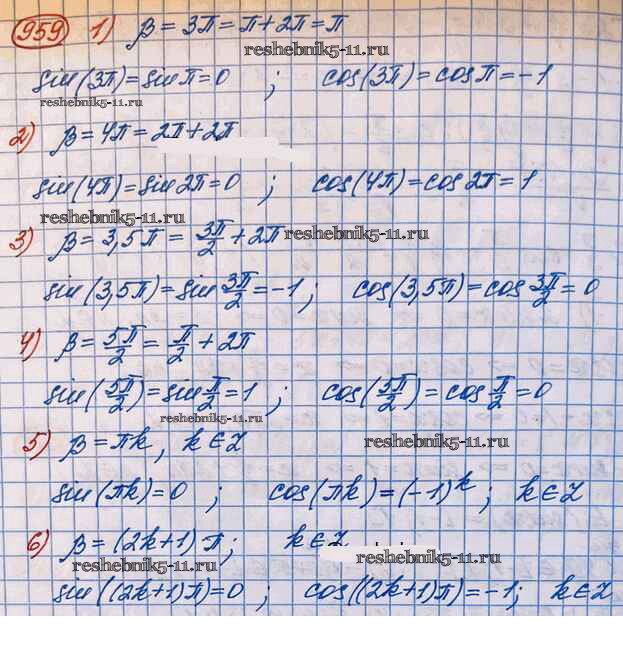 959 1) β = 3π = π + 2π = π
reshebnik5-11.ru
sin(3π) = sin π = 0 ; cos(3π) = cos π = -1
reshebnik5-11.ru
2) β = 4π = 2π + 2π
sin(4π) = sin 2π = 0 ; cos(4π) = cos 2π = 1
reshebnik5-11.ru
3) β = 3,5π = 3π/2 + 2π reshebnik5-11.ru
sin(3,5π) = sin 3π/2 = -1 ; cos(3,5π) = cos 3π/2 = 0
4) β = 5π/2 = π/2 + 2π
sin(5π/2) = sin π/2 = 1 ; cos(5π/2) = cos π/2 = 0
reshebnik5-11.ru
5) β = πk, k ∈ Z reshebnik5-11.ru
sin(πk) = 0 ; cos(πk) = (-1)^k ; k ∈ Z
6) β = (2k+1)π; k ∈ Z
reshebnik5-11.ru reshebnik5-11.ru
sin((2k+1)π) = 0 ; cos((2k+1)π) = -1; k ∈ Z